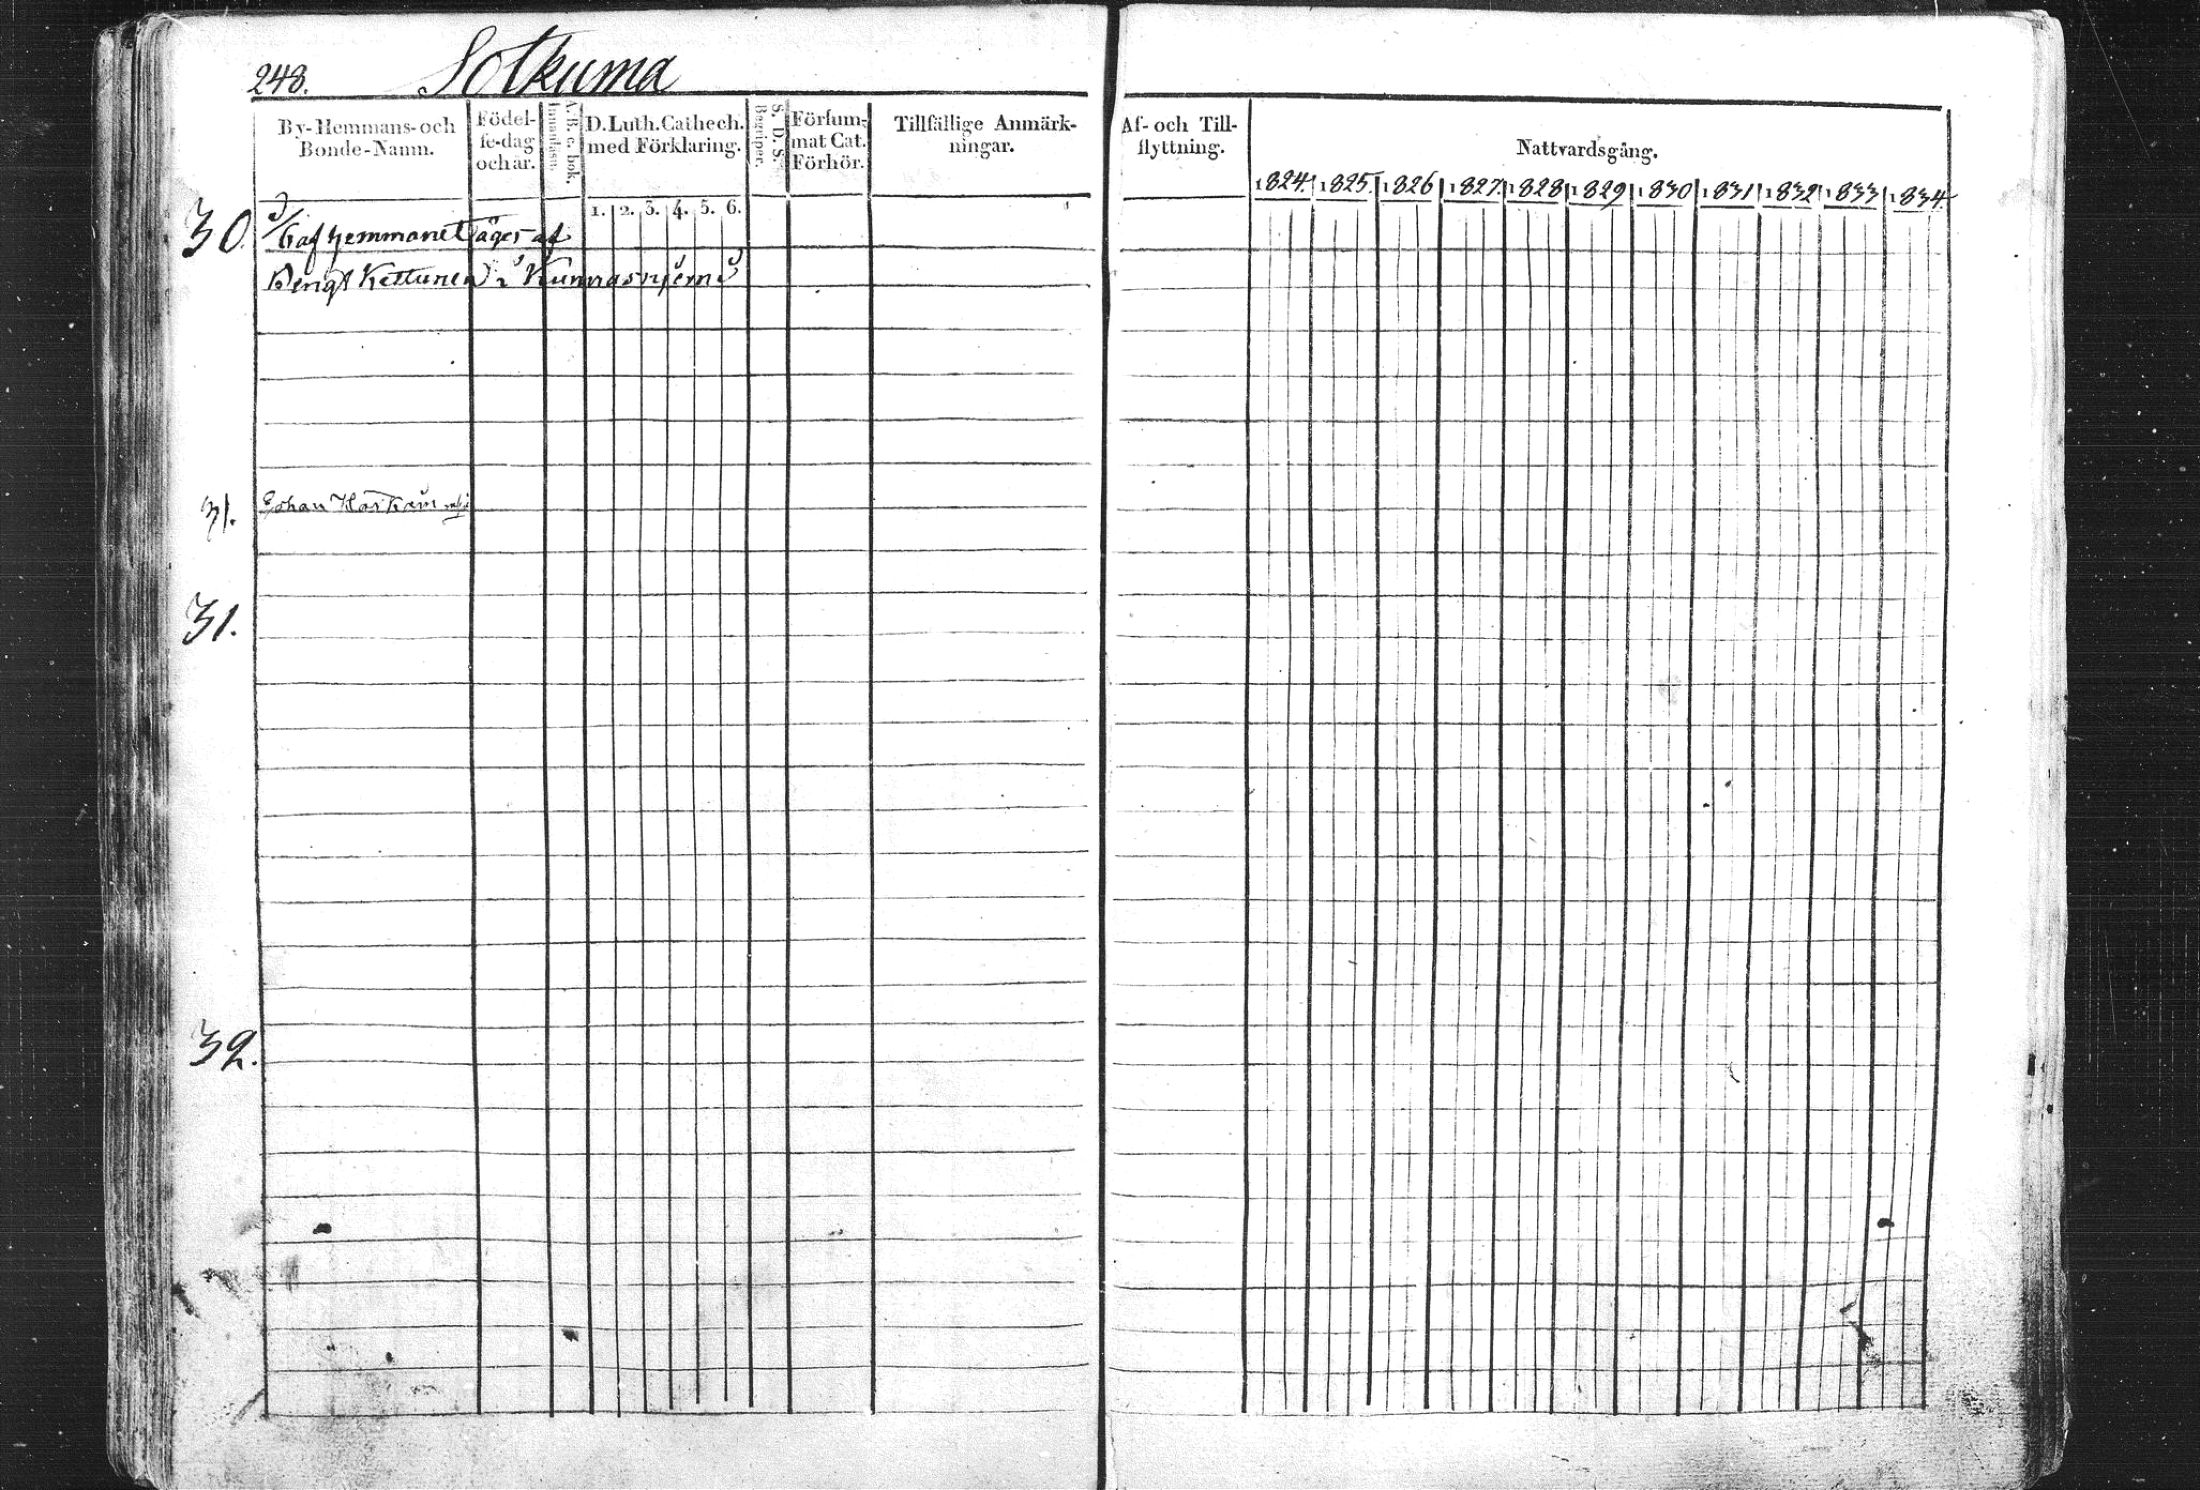 248. Sotkuma
By-Hemmans-och Bonde-Namn.
Födel-se-dag och år.
A. B. c. bok. Innanläsn.
D. Luth. Cathech. med Förklaring.
S. D. S. Begriper.
Försum-mat Cat. Förhör.
Tillfällige Anmärk-ningar.
Af- och Till-flyttning.
Nattvardsgång.
1824. 1825. 1826 1827. 1828 1829 1830 1831 1832 1833 1834.
1. 2. 3. 4. 5. 6.
30. af hemmanet äges af
Bengt Kettunen i Kunnasnjemi
31. Johan
31.
32.